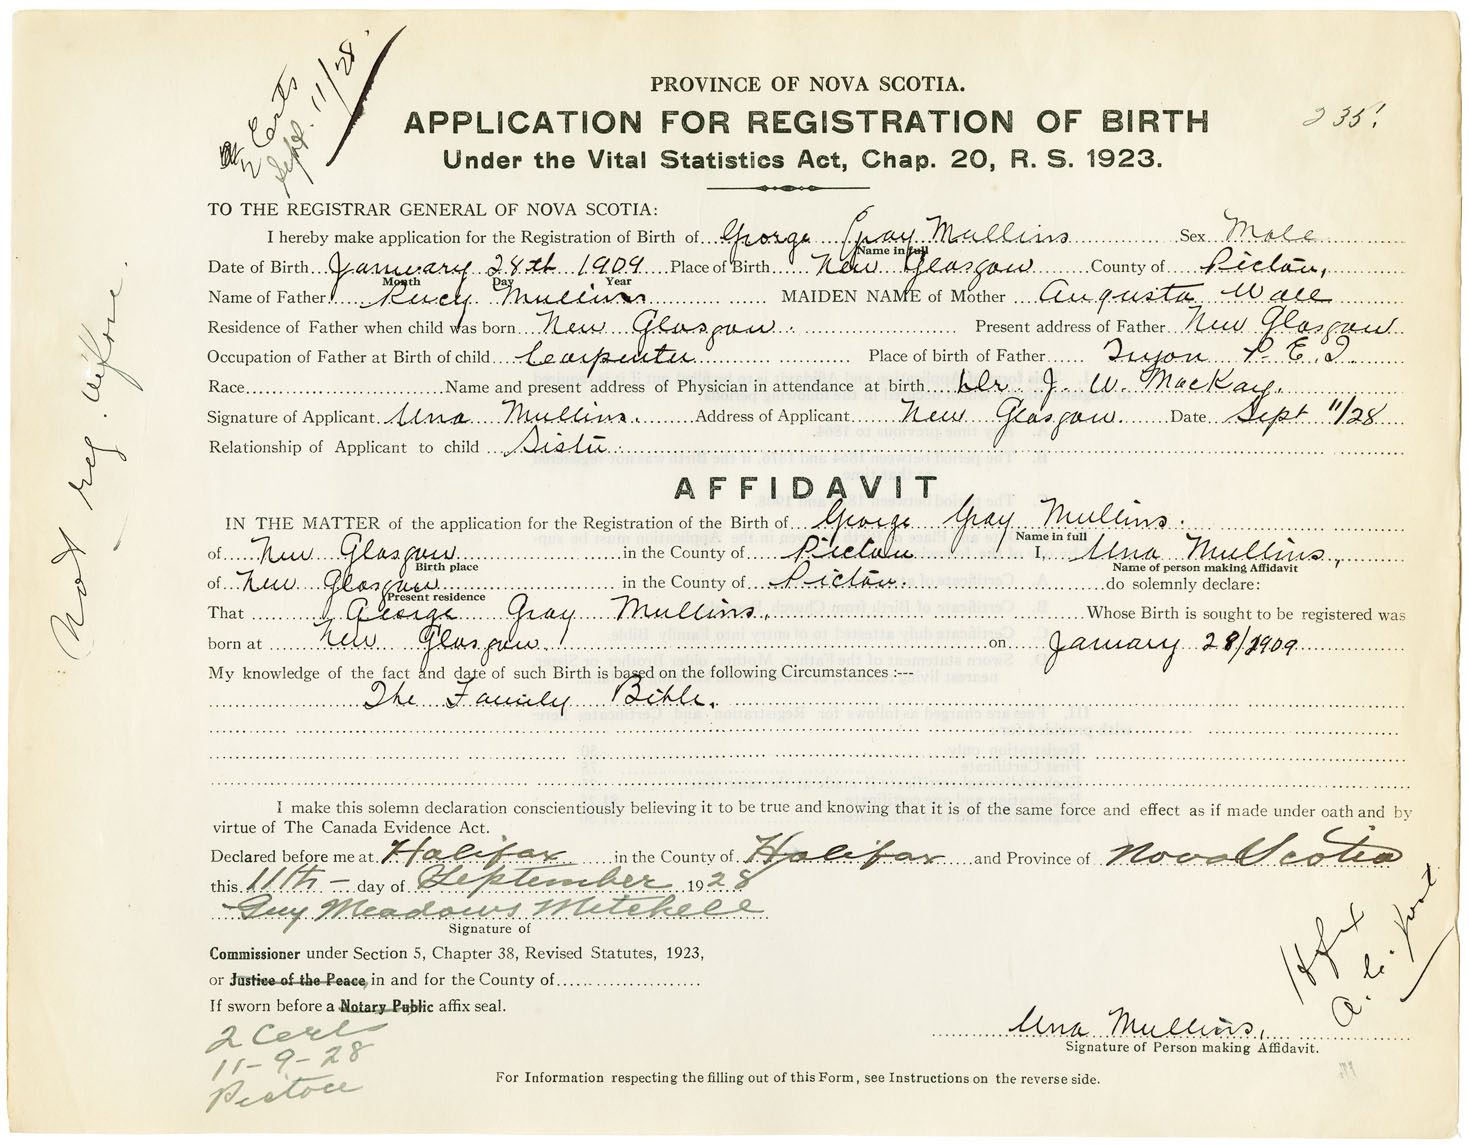 2 Certs
Sept. 11/28.
PROVINCE OF NOVA SCOTIA.
APPLICATION FOR REGISTRATION OF BIRTH
235!
Under the Vital Statistics Act, Chap. 20, R. S. 1923.
TO THE REGISTRAR GENERAL OF NOVA SCOTIA:
I hereby make application for the Registration of Birth of George Gray Mullins Sex Male
Name in full
Date of Birth January 28th 1909 Place of Birth New Glasgow County of Pictou,
Month Day Year
Name of Father Percy Mullins MAIDEN NAME of Mother Augusta Wall
Residence of Father when child was born New Glasgow. Present address of Father New Glasgow
Occupation of Father at Birth of child Carpenter Place of birth of Father Tryon P. E. I.
Race Name and present address of Physician in attendance at birth Dr. J. W. MacKay.
Signature of Applicant Una Mullins. Address of Applicant New Glasgow. Date Sept 11/28
Relationship of Applicant to child Sister
Not reg. before.
AFFIDAVIT
IN THE MATTER of the application for the Registration of the Birth of George Gray Mullins.
Name in full
of New Glasgow in the County of Pictou I, Una Mullins,
Birth place Name of person making Affidavit
of New Glasgow in the County of Pictou. do solemnly declare:
Present residence
That George Gray Mullins, Whose Birth is sought to be registered was
born at New Glasgow. on January 28/1909
My knowledge of the fact and date of such Birth is based on the following Circumstances :---
The Family Bible.
I make this solemn declaration conscientiously believing it to be true and knowing that it is of the same force and effect as if made under oath and by
virtue of The Canada Evidence Act.
Declared before me at Halifax in the County of Halifax and Province of Nova Scotia
this 11th - day of September 1928
Guy Meadows Mitchell
Signature of
Commissioner under Section 5, Chapter 38, Revised Statutes, 1923,
or Justice of the Peace in and for the County of
If sworn before a Notary Public affix seal.
2 Certs
11-9-28
Pictou
Hfx
Una Mullins,
Signature of Person making Affidavit.
For Information respecting the filling out of this Form, see Instructions on the reverse side.